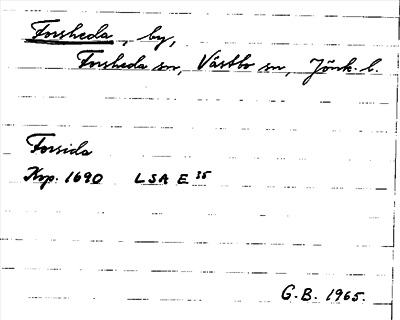 Forsheda, by,
Forsheda sn, Västbo sn, Jönk. l.
Forsida
Kop. 1690 LSA E 35
G.B. 1965.